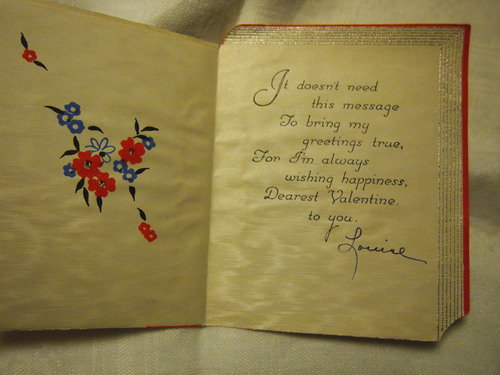 It doesn't need
this message
To bring my
greetings true,
For I'm always
wishing happiness,
Dearest Valentine.
to you.
Louise